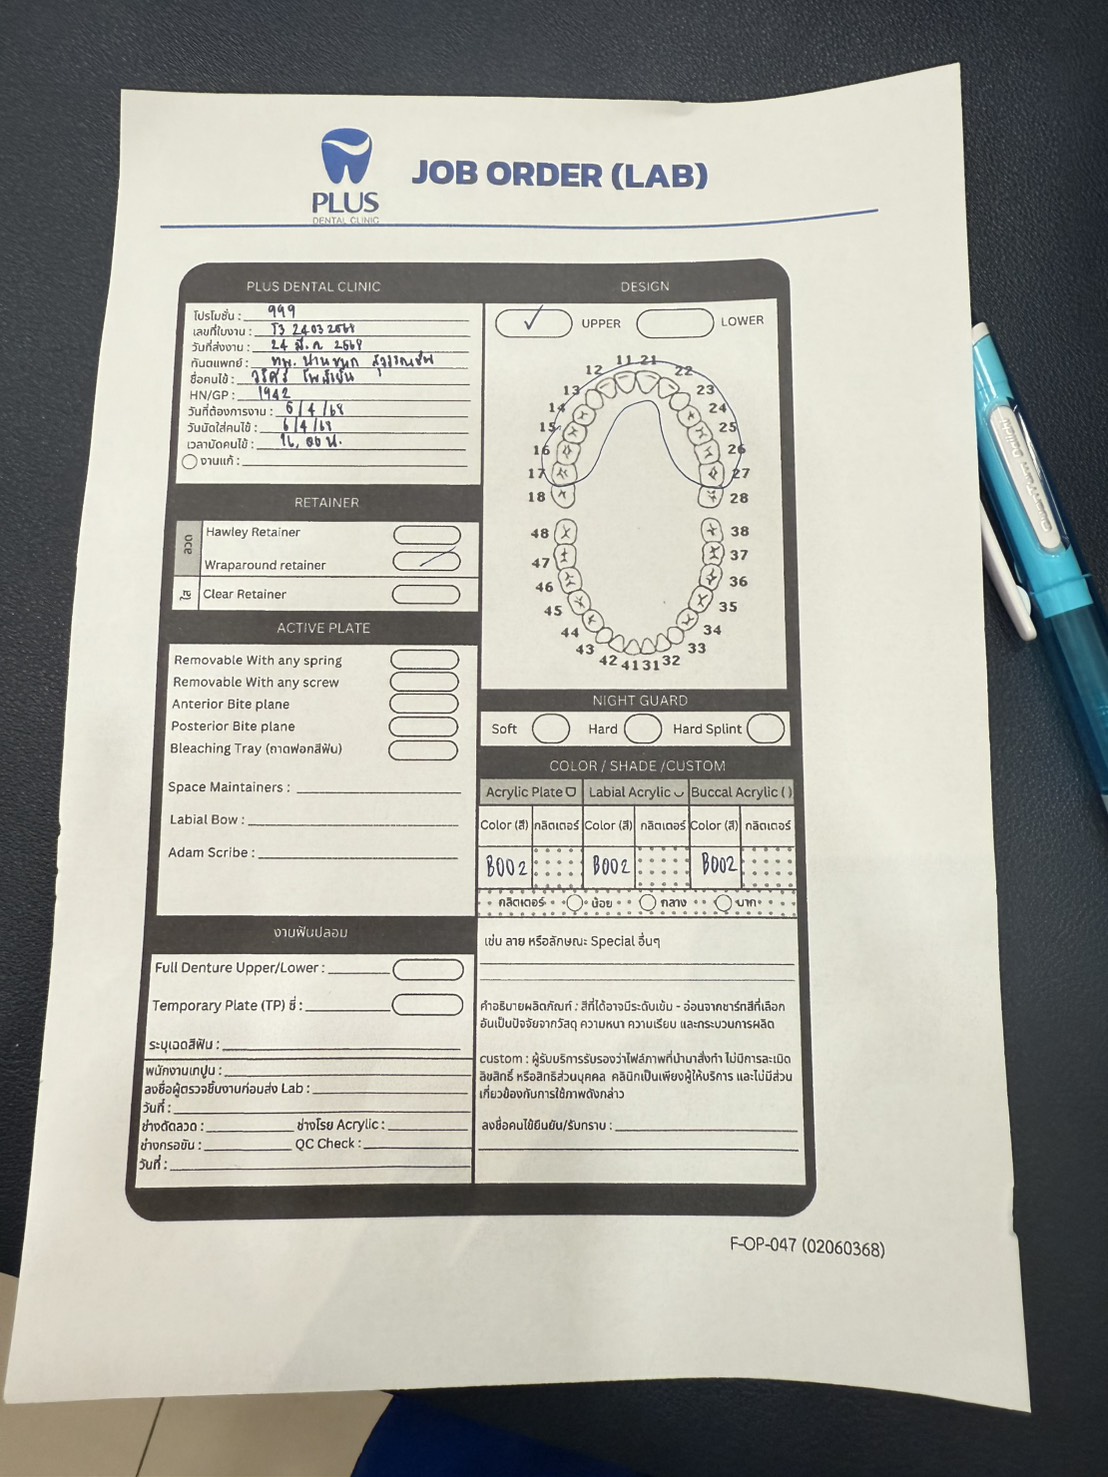 PLUS
DENTAL CLINIC
JOB ORDER (LAB)
PLUS DENTAL CLINIC
โปรโมชั่น : 999
เลขที่ใบงาน : T3 24032568
วันที่ส่งงาน : 24 มี.ค 2568
ทันตแพทย์ : ทพ.
ชื่อคนไข้ :
HN/GP : 1942
วันที่ต้องการงาน : 6/4/68
วันนัดใส่คนไข้ : 6/4/68
เวลานัดคนไข้ : น.
งานแก้ :
RETAINER
ลวด
Hawley Retainer
Wraparound retainer
ใส
Clear Retainer
ACTIVE PLATE
Removable With any spring
Removable With any screw
Anterior Bite plane
Posterior Bite plane
Bleaching Tray (ถาดฟอกสีฟัน)
Space Maintainers :
Labial Bow :
Adam Scribe :
งานฟันปลอม
Full Denture Upper/Lower :
Temporary Plate (TP) ซี่ :
ระบุเฉดสีฟัน :
พนักงานเทปูน :
ลงชื่อผู้ตรวจชิ้นงานก่อนส่ง Lab :
วันที่ :
ช่างดัดลวด : ช่างโรย Acrylic :
ช่างกรอขัน : QC Check :
วันที่ :
DESIGN
UPPER LOWER
11 21
12 22
13 23
14 24
15 25
16 26
17 27
18 28
48 38
47 37
46 36
45 35
44 34
43 33
42 41 31 32
NIGHT GUARD
Soft Hard Hard Splint
COLOR / SHADE /CUSTOM
Acrylic Plate Labial Acrylic Buccal Acrylic ( )
Color (สี) กลิตเตอร์ Color (สี) กลิตเตอร์ Color (สี) กลิตเตอร์
B002 B002 B002
กลิตเตอร์ น้อย กลาง มาก
เช่น ลาย หรือลักษณะ Special อื่นๆ
คำอธิบายผลิตภัณฑ์ : สีที่ได้อาจมีระดับเข้ม - อ่อนจากชาร์ทสีที่เลือก
อันเป็นปัจจัยจากวัสดุ ความหนา ความเรียบ และกระบวนการผลิต
custom : ผู้รับบริการรับรองว่าไฟล์ภาพที่นำมาสั่งทำ ไม่มีการละเมิด
ลิขสิทธิ์ หรือสิทธิส่วนบุคคล คลินิกเป็นเพียงผู้ให้บริการ และไม่มีส่วน
เกี่ยวข้องกับการใช้ภาพดังกล่าว
ลงชื่อคนไข้ยืนยัน/รับทราบ :
F-OP-047 (02060368)